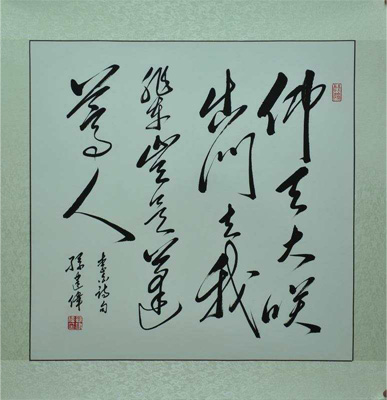 仰天大咲
出门去我
辈岂是蓬
蒿人
李白诗句
孙建伟